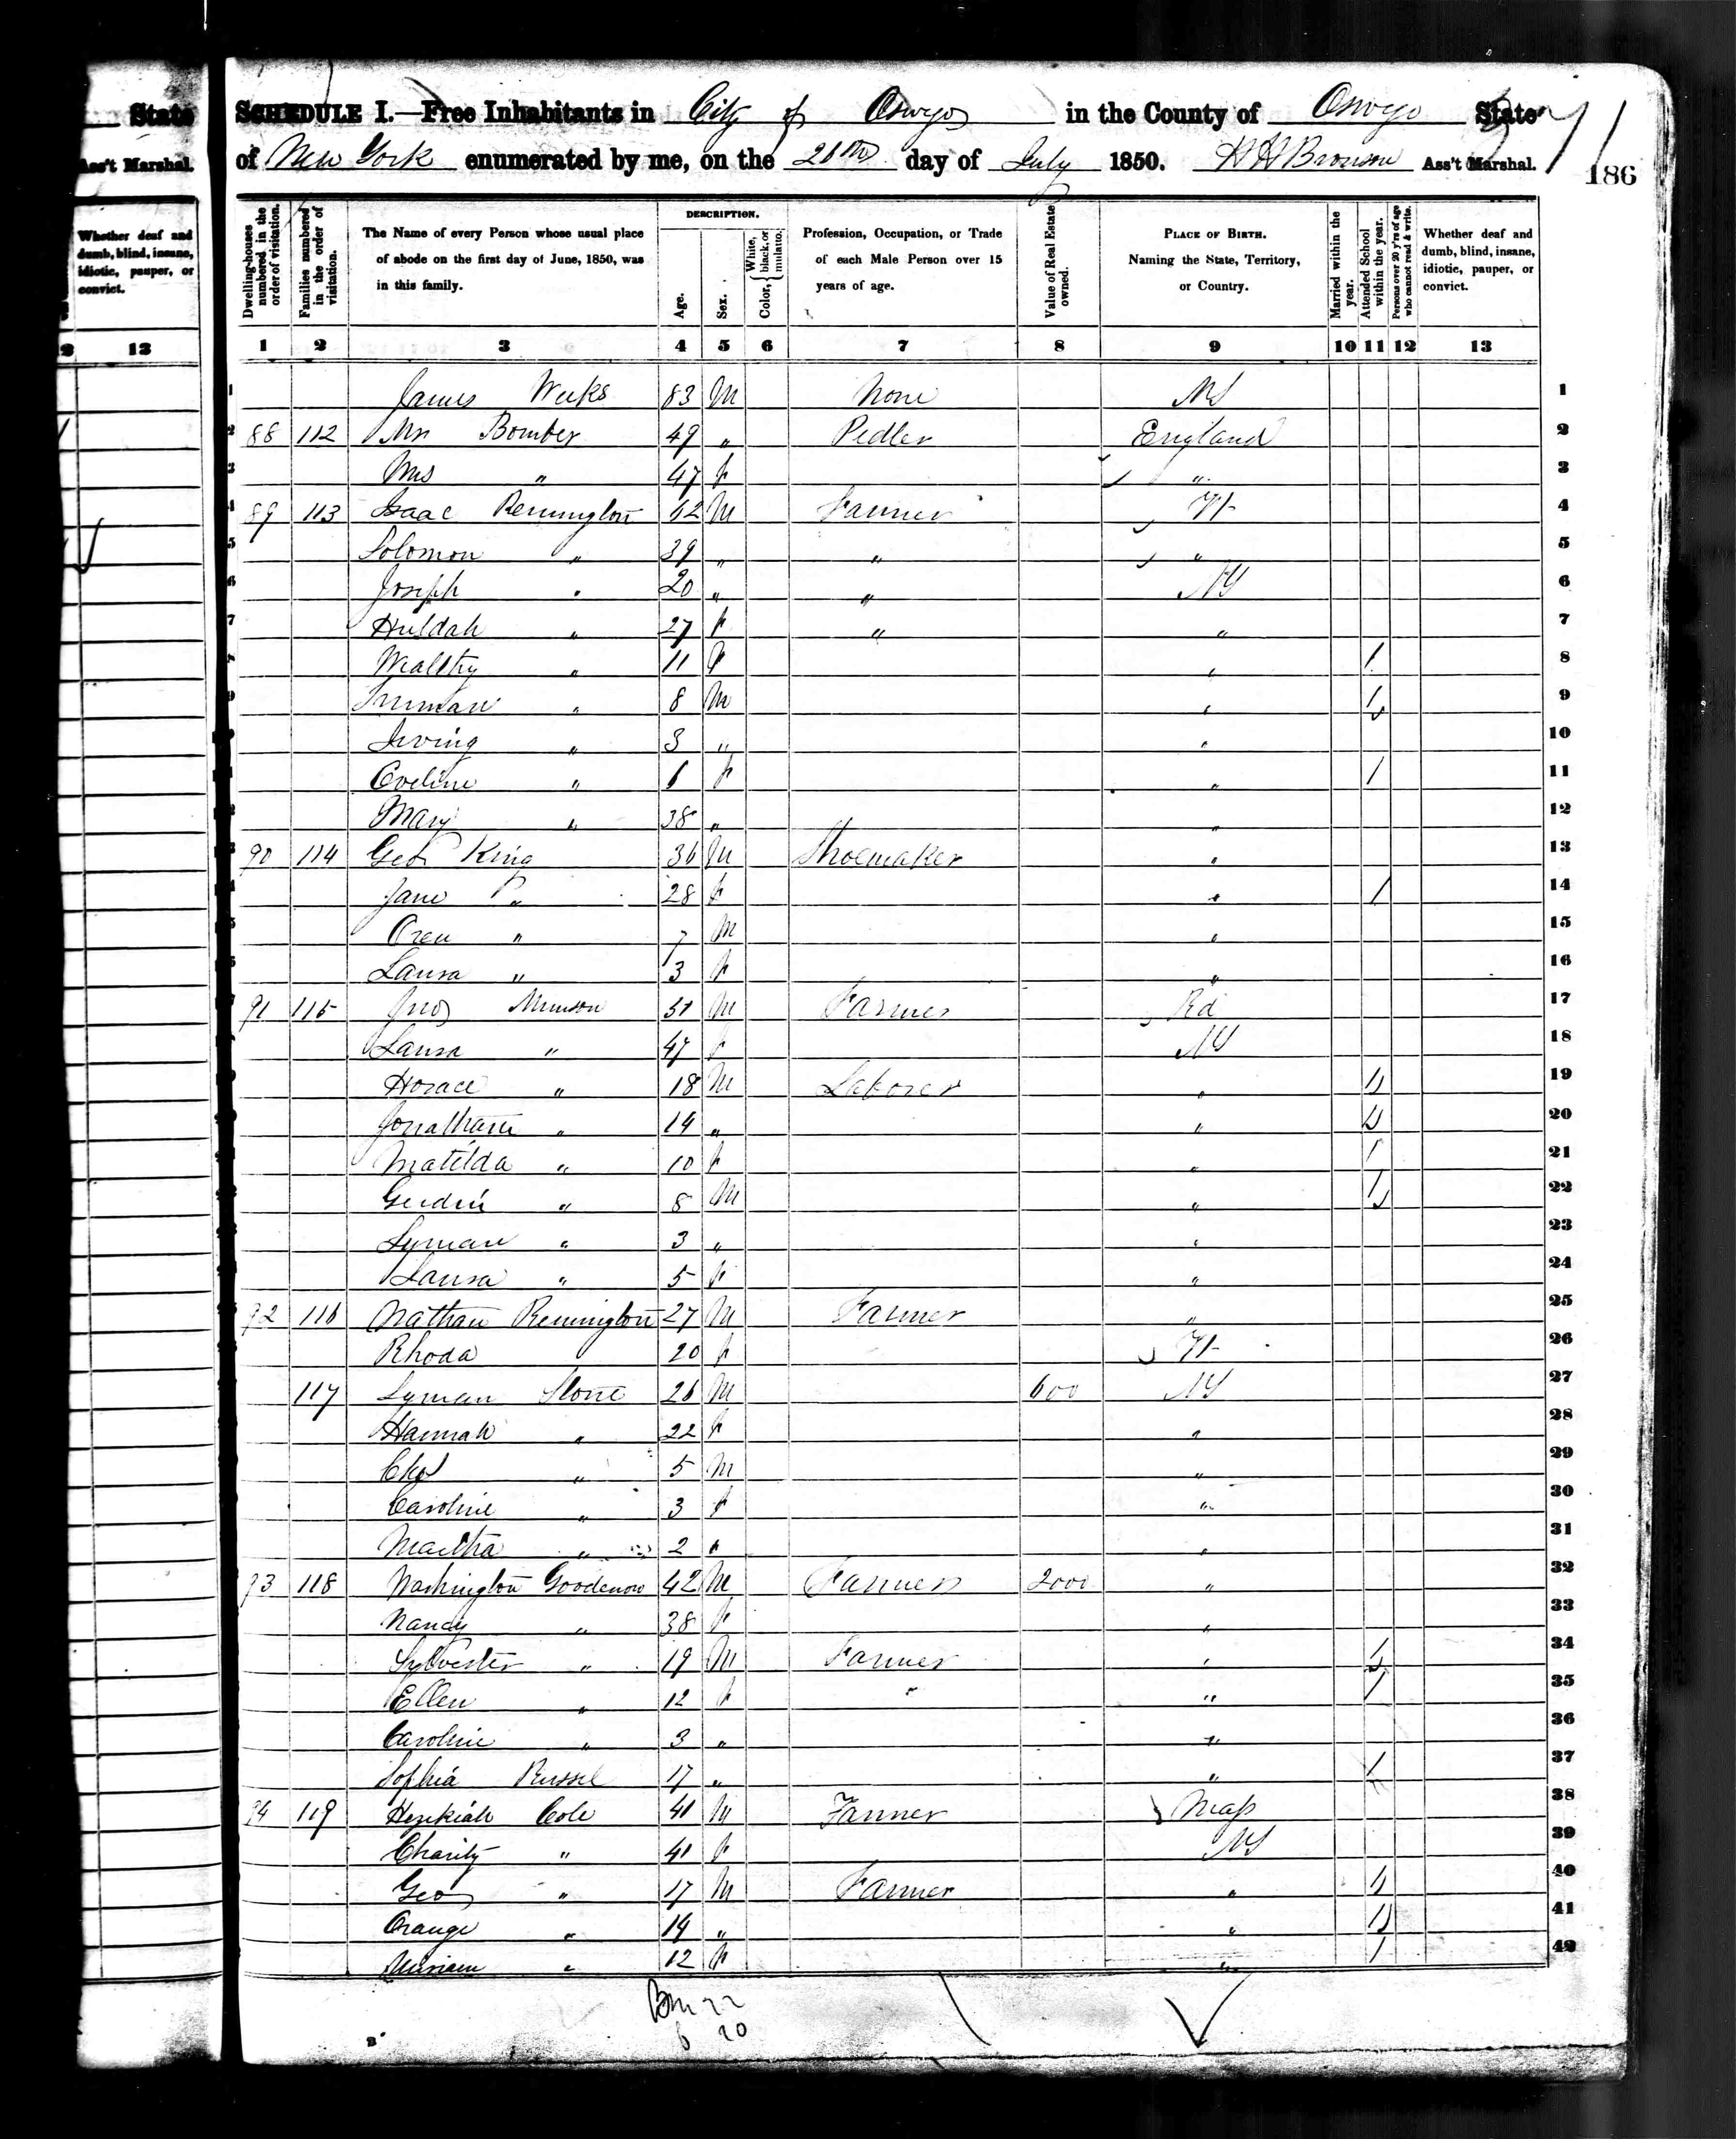 State
Ass't Marshal.
Whether deaf and dumb, blind, insane, idiotic, pauper, or convict.
13
SCHEDULE I.—Free Inhabitants in City of Oswego in the County of Oswego State
of New York enumerated by me, on the 26th day of July 1850. H H Bronson Ass't Marshal.
186
Dwelling-houses numbered in the order of visitation.
Families numbered in the order of visitation.
The Name of every Person whose usual place of abode on the first day of June, 1850, was in this family.
DESCRIPTION.
Age.
Sex.
Color, { White, black, or mulatto.
Profession, Occupation, or Trade of each Male Person over 15 years of age.
Value of Real Estate owned.
PLACE OF BIRTH. Naming the State, Territory, or Country.
Married within the year.
Attended School within the year.
Persons over 20 y'rs of age who cannot read & write.
Whether deaf and dumb, blind, insane, idiotic, pauper, or convict.
1 2 3 4 5 6 7 8 9 10 11 12 13
1 James Weeks 83 M None NY 1
88 112 Mr Bomber 49 " Pedler England 2
Mrs " 47 f " 3
89 113 Isaac Remington 62 M Farmer Vt 4
Solomon " 39 " " " 5
Joseph " 20 " " NY 6
Huldah " 27 f " " 7
Wealthy " 11 f " 1 8
Truman " 8 M " 1 9
Irving " 3 " " 10
Eveline " 6 f " 1 11
Mary " 38 " " 12
90 114 Geo King 36 M Shoemaker " 13
Jane " 28 f " 1 14
Oren " 7 M " 15
Laura " 3 f " 16
91 115 Jno Munson 51 M Farmer Rd 17
Laura " 47 f NY 18
Horace " 18 M Laborer " 1 19
Jonathan " 14 " " 1 20
Matilda " 10 f " 1 21
" 8 M " 1 22
Lyman " 3 " " 23
Laura " 5 f " 24
92 116 Nathan Remington 27 M Farmer " 25
Rhoda 20 f Vt 26
117 Lyman Stone 26 M 600 NY 27
Hannah " 22 f " 28
Chas " 5 M " 29
Caroline " 3 f " 30
Martha " 2 " " 31
93 118 Washington Goodenow 42 M Farmer 2000 " 32
Nancy " 38 f " 33
Sylvester " 19 M Farmer " 1 34
Ellen " 12 f " " 1 35
Caroline " 3 " " 36
Sophia Russel 17 " " 1 37
94 119 Hezekiah Cole 41 M Farmer Mass 38
Charity " 41 f NY 39
Geo " 17 M Farmer " 1 40
Orange " 14 " " 1 41
Miriam " 12 f " 1 42
22
20